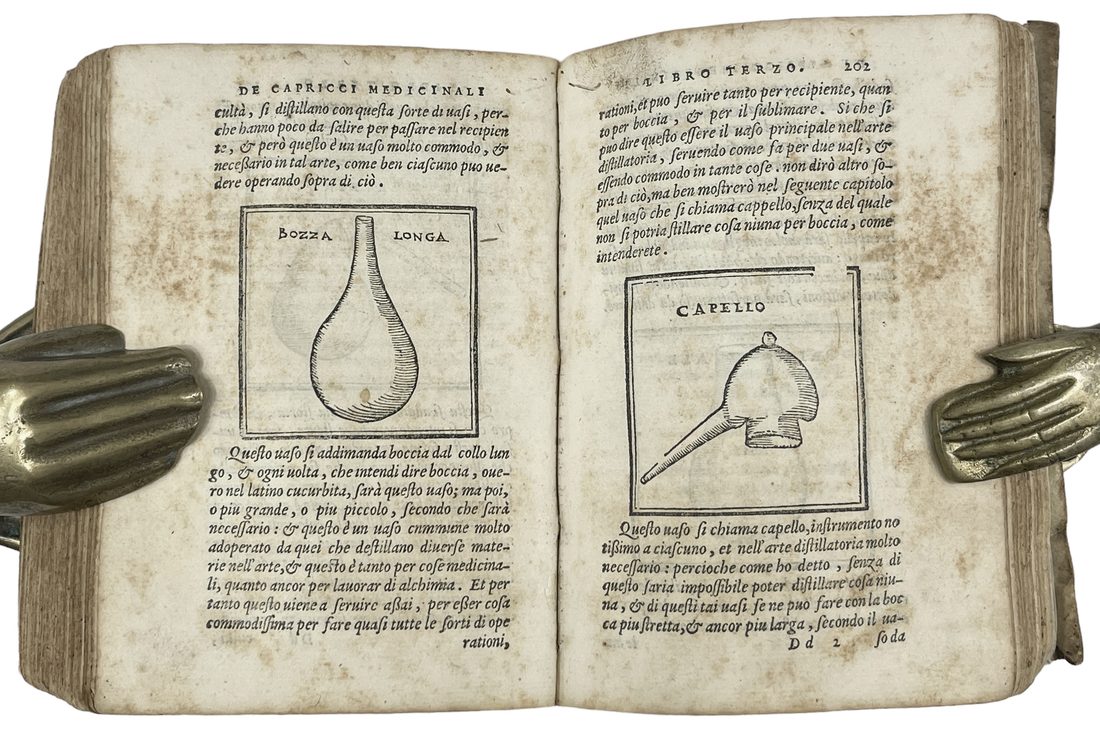 DE CAPRICCI MEDICINALI
cultà, si distillano con questa sorte di uasi, per-
che hanno poco da salire per passare nel recipien
te, & però questo è un uaso molto commodo, &
necessario in tal arte, come ben ciascuno puo ue-
dere operando sopra di ciò.
BOZZA LONGA
Questo uaso si addimanda boccia dal collo lun
go, & ogni uolta, che intendi dire boccia, oue-
ro nel latino cucurbita, sarà questo uaso; ma poi,
o piu grande, o piu piccolo, secondo che sarà
necessario: & questo è un uaso cnmmune molto
adoperato da quei che destillano diuerse mate-
rie nell'arte, & questo è tanto per cose medicina-
li, quanto ancor per lauorar di alchimia. Et per
tanto questo uiene a seruire assai, per esser cosa
commodissima per fare quasi tutte le sorti di ope
rationi,
LIBRO TERZO. 202
rationi, et puo seruire tanto per recipiente, quan
to per boccia, & per il sublimare. Si che si
puo dire questo essere il uaso principale nell'arte
distillatoria, seruendo come fa per due uasi, &
essendo commodo in tante cose. non dirò altro so-
pra di ciò, ma ben mostrerò nel seguente capitolo
quel uaso che si chiama cappello, senza del quale
non si potria stillare cosa niuna per boccia, come
intenderete.
CAPELLO
Questo uaso si chiama capello, instrumento no
tissimo a ciascuno, et nell'arte distillatoria molto
necessario: percioche come ho detto, senza di
questo saria impossibile poter distillare cosa niu-
na, & di questi tai uasi se ne può fare con la boc
ca piu stretta, & ancor piu larga, secondo il ua-
D d 2 so da